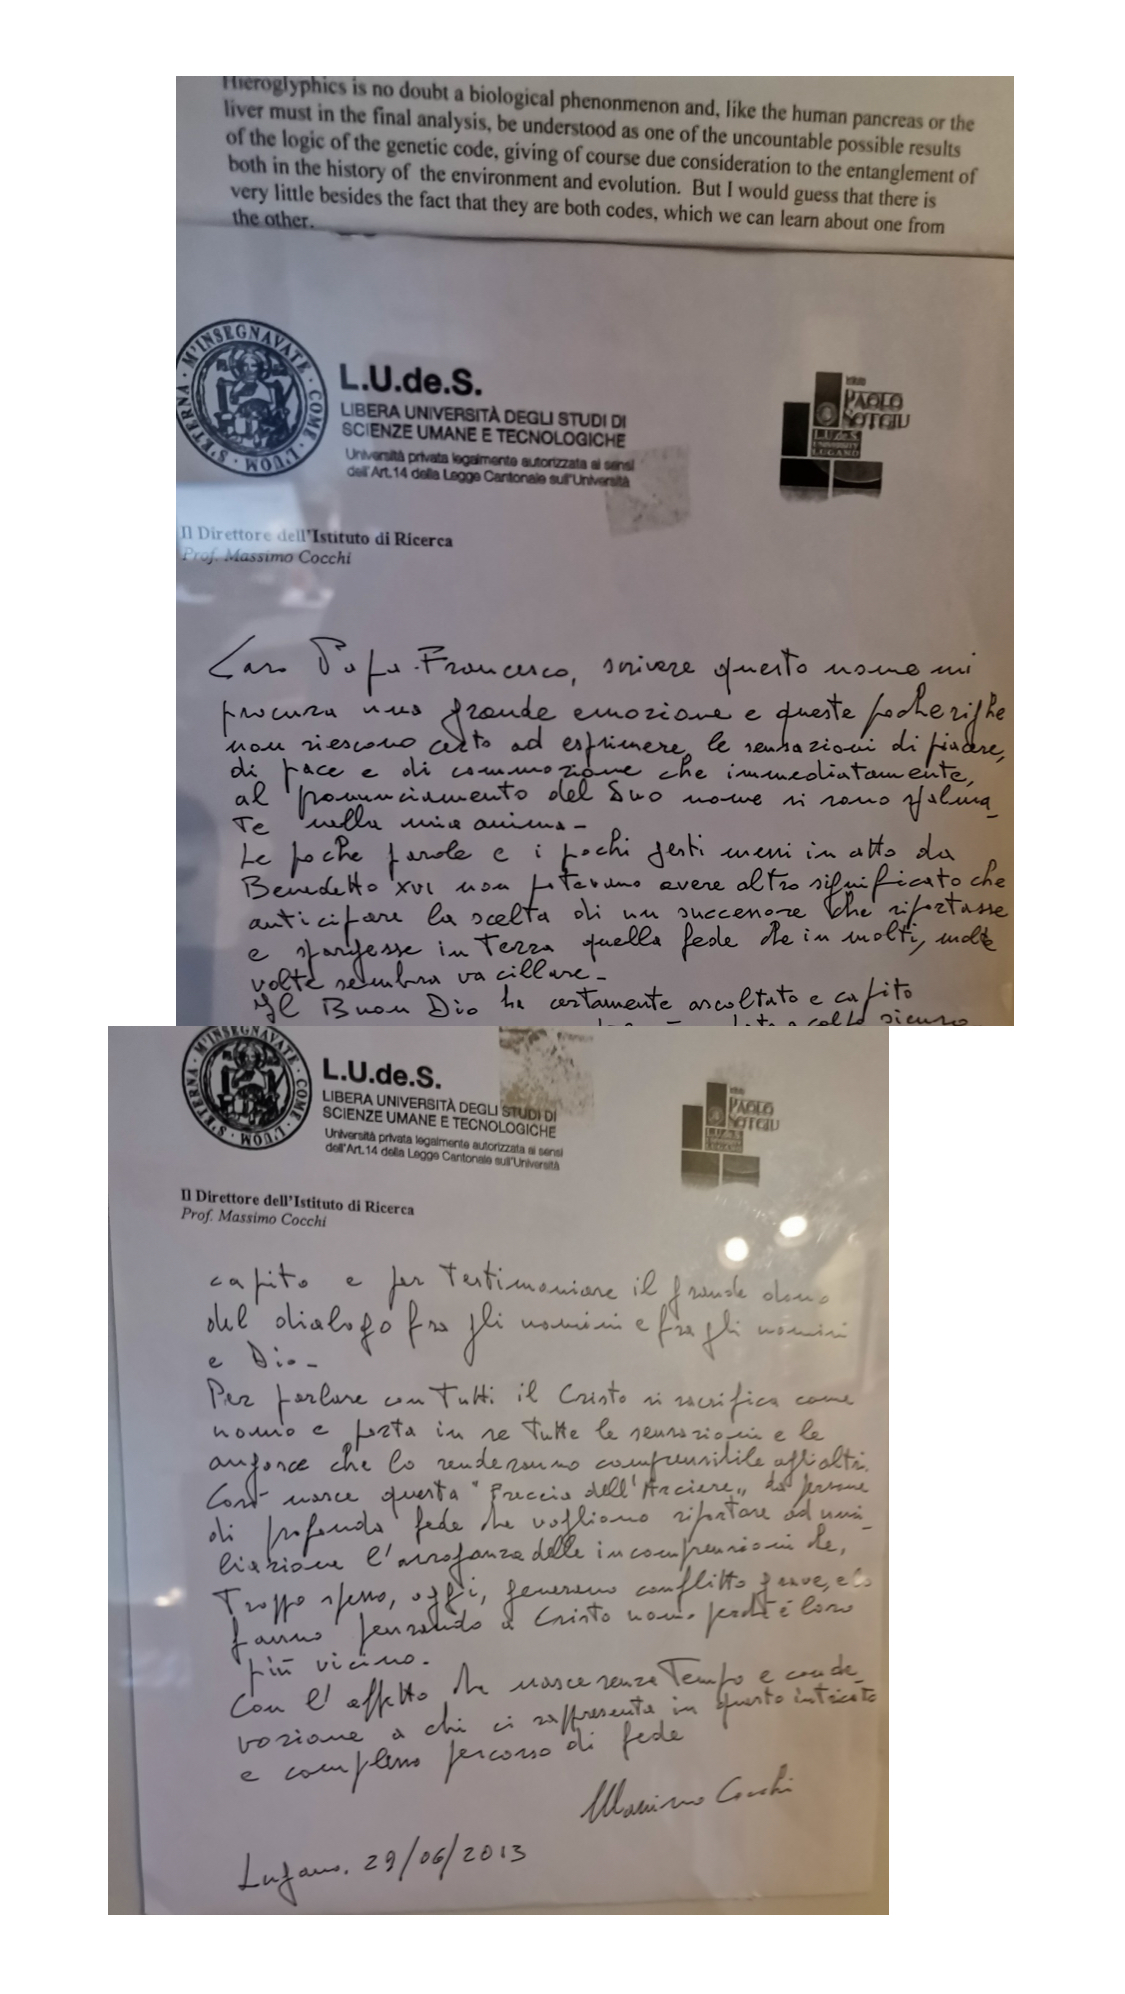 Hieroglyphics is no doubt a biological phenonmenon and, like the human pancreas or the
liver must in the final analysis, be understood as one of the uncountable possible results
of the logic of the genetic code, giving of course due consideration to the entanglement of
both in the history of the environment and evolution. But I would guess that there is
very little besides the fact that they are both codes, which we can learn about one from
the other.
M'INSEGNAVATE · COME · L'UOM · S'ETERNA ·
L.U.de.S.
LIBERA UNIVERSITÀ DEGLI STUDI DI
SCIENZE UMANE E TECNOLOGICHE
Università privata legalmente autorizzata ai sensi
dell'Art.14 della Legge Cantonale sull'Università
PAOLO
SOTGIU
L.U.de.S.
UNIVERSITY
LUGANO
Il Direttore dell'Istituto di Ricerca
Prof. Massimo Cocchi
Caro Papa Francesco, scrivere questo nome mi
procura una grande emozione e queste poche righe
non riescono certo ad esprimere, le sensazioni di piacere,
di pace e di commozione che immediatamente,
al pronunciamento del Suo nome si sono
te nella mia anima -
Le poche parole e i pochi gesti messi in atto da
Benedetto XVI non potevano avere altro significato che
anticipare la scelta di un successore che riportasse
e spargesse in Terra quella fede che in molti, molte
volte sembra vacillare -
Il Buon Dio ha certamente ascoltato e capito
sicuro
M'INSEGNAVATE · COME · L'UOM · S'ETERNA ·
L.U.de.S.
LIBERA UNIVERSITÀ DEGLI STUDI DI
SCIENZE UMANE E TECNOLOGICHE
Università privata legalmente autorizzata ai sensi
dell'Art.14 della Legge Cantonale sull'Università
PAOLO
SOTGIU
L.U.de.S.
Il Direttore dell'Istituto di Ricerca
Prof. Massimo Cocchi
capito e per testimoniare il grande dono
del dialogo fra gli uomini e fra gli uomini
e Dio -
Per parlare con Tutti il Cristo si sacrifica come
uomo e porta in se tutte le sensazioni e le
angosce che lo renderanno comprensibile agli altri.
Così nasce questa "Freccia dell'Arciere" da persone
di profonda fede che vogliono riportare ad umi-
liazione l'arroganza delle incomprensioni che,
Troppo spesso, oggi, generano conflitto grave, e lo
fanno pensando a Cristo uomo perché è loro
più vicino.
Con l'affetto che nasce senza Tempo e con de_
vozione a chi ci rappresenta in questo intricato
e complesso percorso di fede
Massimo Cocchi
Lugano, 29/06/2013